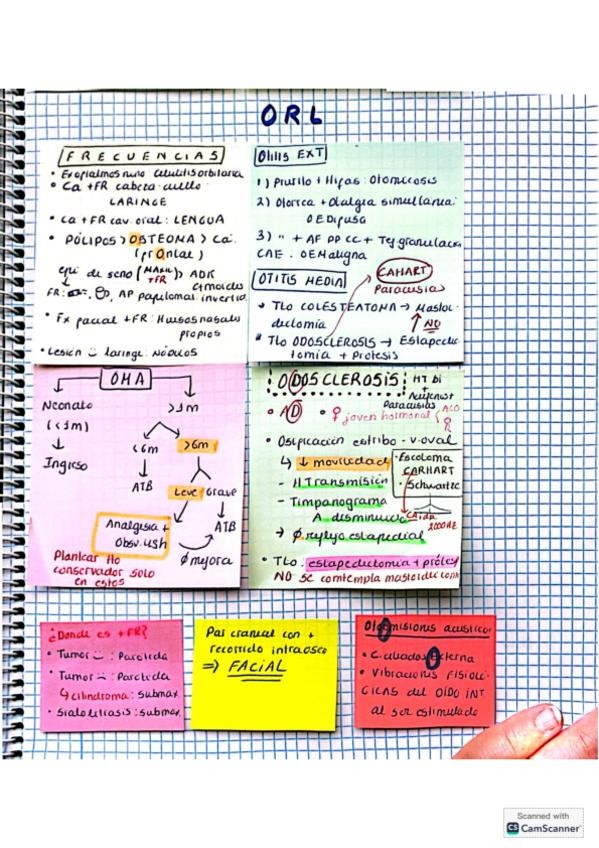 ORL
FRECUENCIAS
• Exoftalmos niño: Celulitis orbitaria
• Ca +FR cabeza-cuello:
LARINGE
• Ca +FR cav. oral: LENGUA
• PÓLIPOS > OSTEOMA > Ca.
(frontal)
epi de seno (MAXIL +FR) ADK
etmoides
FR: AP papiloma invertido.
• Fx facial +FR: Huesos nasales
propios
• Lesión :) laringe: NÓDULOS
Otitis EXT
1) Prurito + Hifas: Otomicosis
2) Otorrea + Otalgia simultánea:
OE Difusa
3) " + AF PP CC + Tej granulación
CAE: OE Maligna
OTITIS MEDIA
CAHART
Paracusias
• Tto COLESTEATOMA → Mastoi-
dectomía
↑ NO
• Tto ODOSCLEROSIS → Estapedec-
tomía + Prótesis
OMA
Neonato
(<1m)
↓
Ingreso
>1m
<6m
↓
ATB
>6m
Leve
Grave
↓
ATB
Analgesia +
Obsv. 48h
Ø mejora
Plantear tto
conservador solo
en estos
ODOSCLEROSIS:
HT Bi
+
Acúfenos +
Paracusias
• AD
♀ joven hormonal (ACO
• Osificación estribo - v. oval
↳ ↓ movilidad
- H Transmisión
- Timpanograma
A disminuido
→ Ø reflejo estapedial
• Escotoma
CARHART
• Schwartze
Caída
2000HZ
• Tto: estapedectomía + prótesis
NO se contempla mastoidectomía
¿Donde es +FR?
• Tumor :) : Parótida
• Tumor :( : Parótida
↳ cilindroma: submax.
• Sialolitiasis: submax.
Par craneal con +
recorrido intraóseo
⇒ FACIAL
Otoemisiones acústicas
• C. ciliadas Externa
• Vibraciones FISIOLÓ-
GICAS del OÍDO INT
al ser estimulado
Scanned with
CS CamScanner